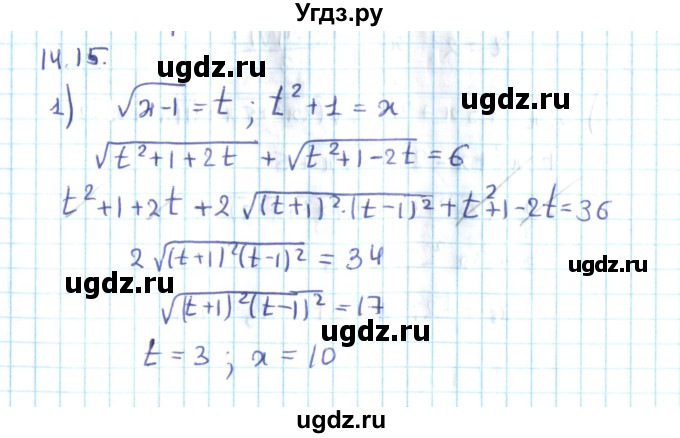 Угдз.ру
14.15.
ugdz.ru ugdz.ru
1) √(x-1) = t ; t² + 1 = x
ugdz.ru
√(t²+1+2t) + √(t²+1-2t) = 6
t²+1+2t + 2√((t+1)²·(t-1)²) + t²+1-2t = 36
ugdz.ru
2√((t+1)²(t-1)²) = 34
ugdz.ru
√((t+1)²(t-1)²) = 17
ugdz.ru
t = 3 ; x = 10
ugdz.ru